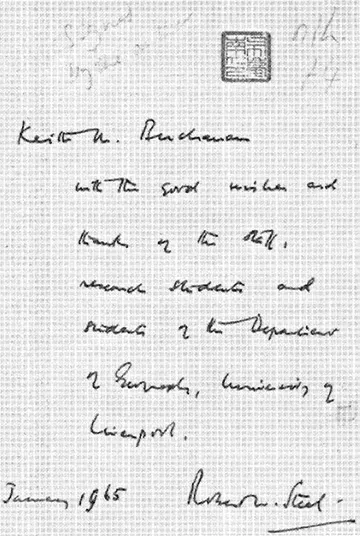 Signed
by the
Keith M. Buchanan
with the good wishes and
thanks of the staff,
research students and
students of the Department
of Geography, University of
Liverpool.
January 1965 Robert W. Steel.